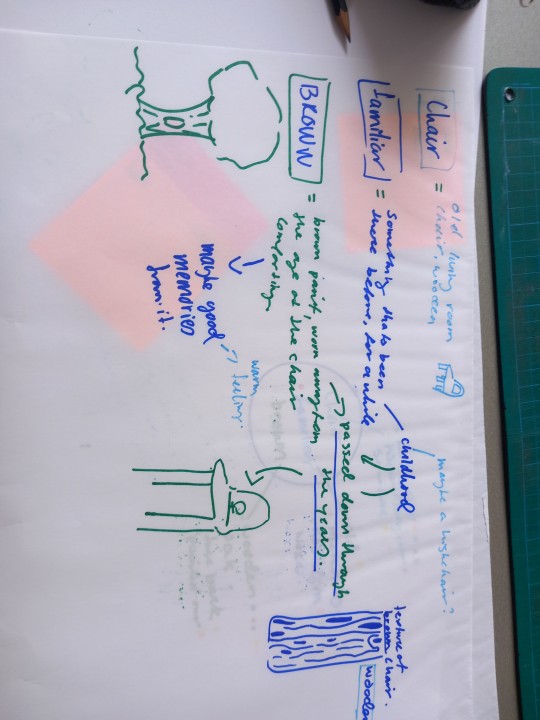 Chair = old living room
chair, wooden
maybe a highchair?
familiar = Something thats been
there before, for a while
childhood
passed down through
the years.
BROWN = brown paint, worn away from
the age of the chair
comforting
maybe good
memories
from it.
warm
feeling
texture of
chair.
wooden